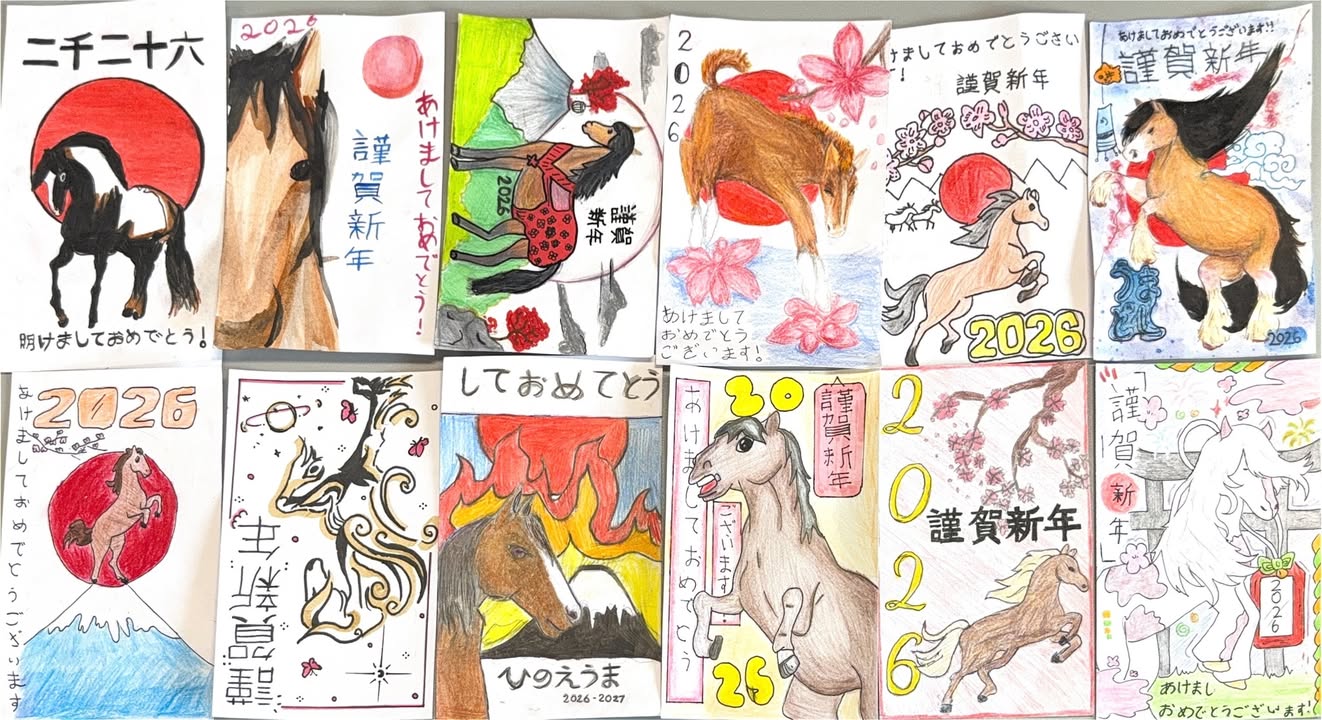 二千二十六
明けましておめでとう!
2026
謹賀新年
あけましておめでとう!
2026
謹賀
新年
2026
あけまして
おめでとう
ございます!
けましておめでとうござい
!
謹賀新年
2026
あけましておめでとうございます!!
謹賀新年
2026
2026
あけましておめでとうございます
謹賀新年
しておめでとう
ひのえうま
2026-2027
20
謹賀新年
あけましておめでとう
ございます
26
2026
謹賀新年
「謹賀新年」
2026
あけまし
おめでとうございます!